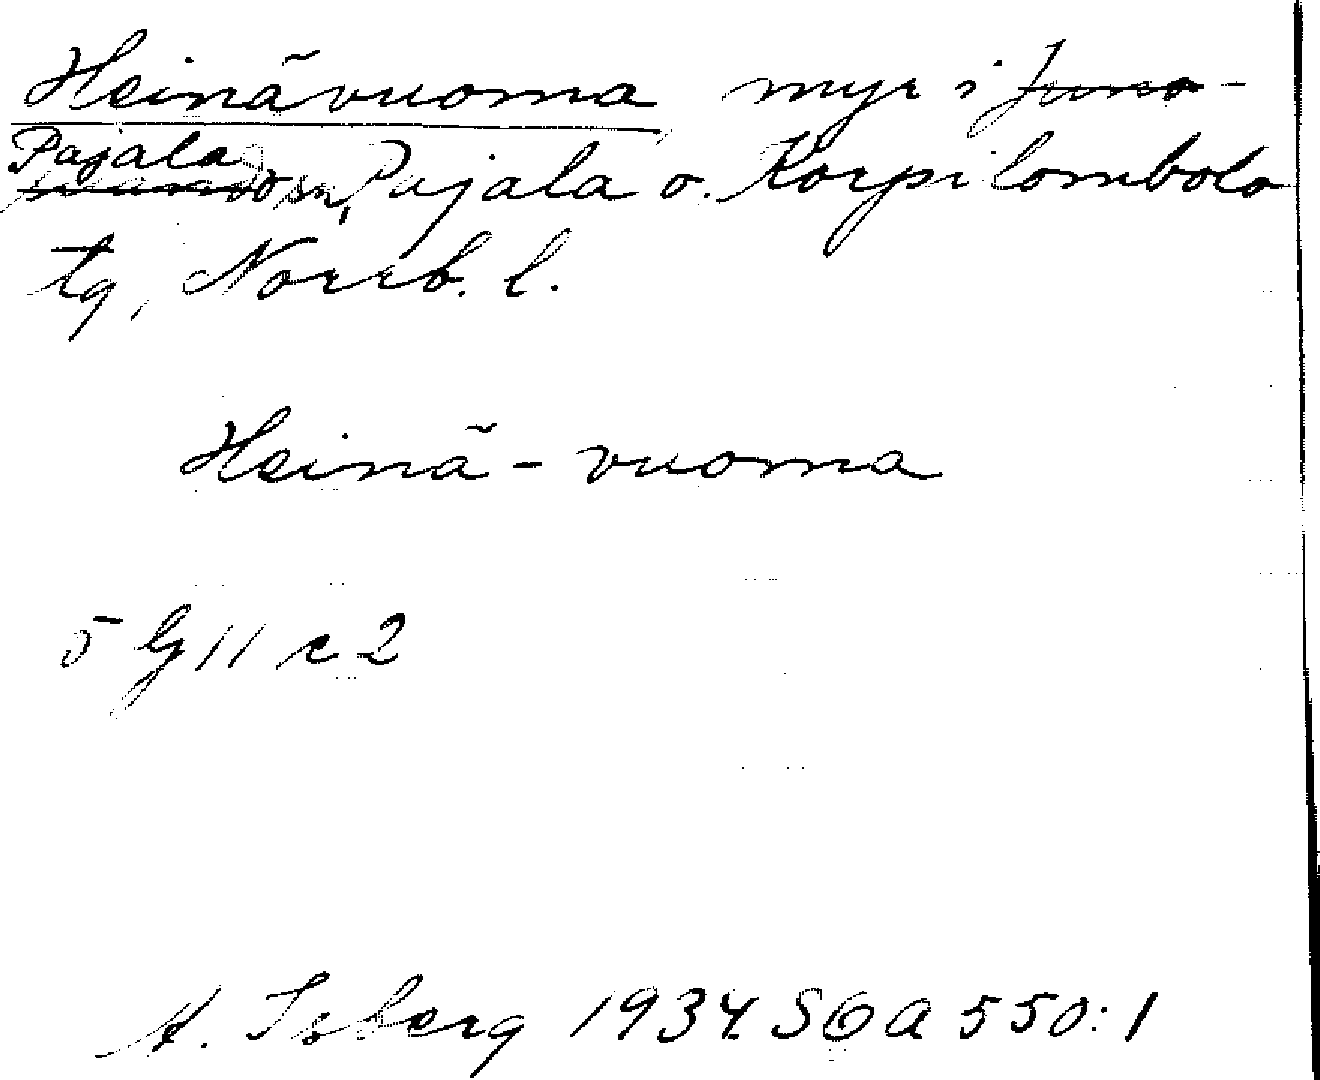 Heinävuoma myr i Juno-
Pajala
suando sn, Pajala o. Korpilombolo
tg, Norrb. l.
Heinä-vuoma
5 G 11 c 2
A. Isberg 1934 SOA 550:1